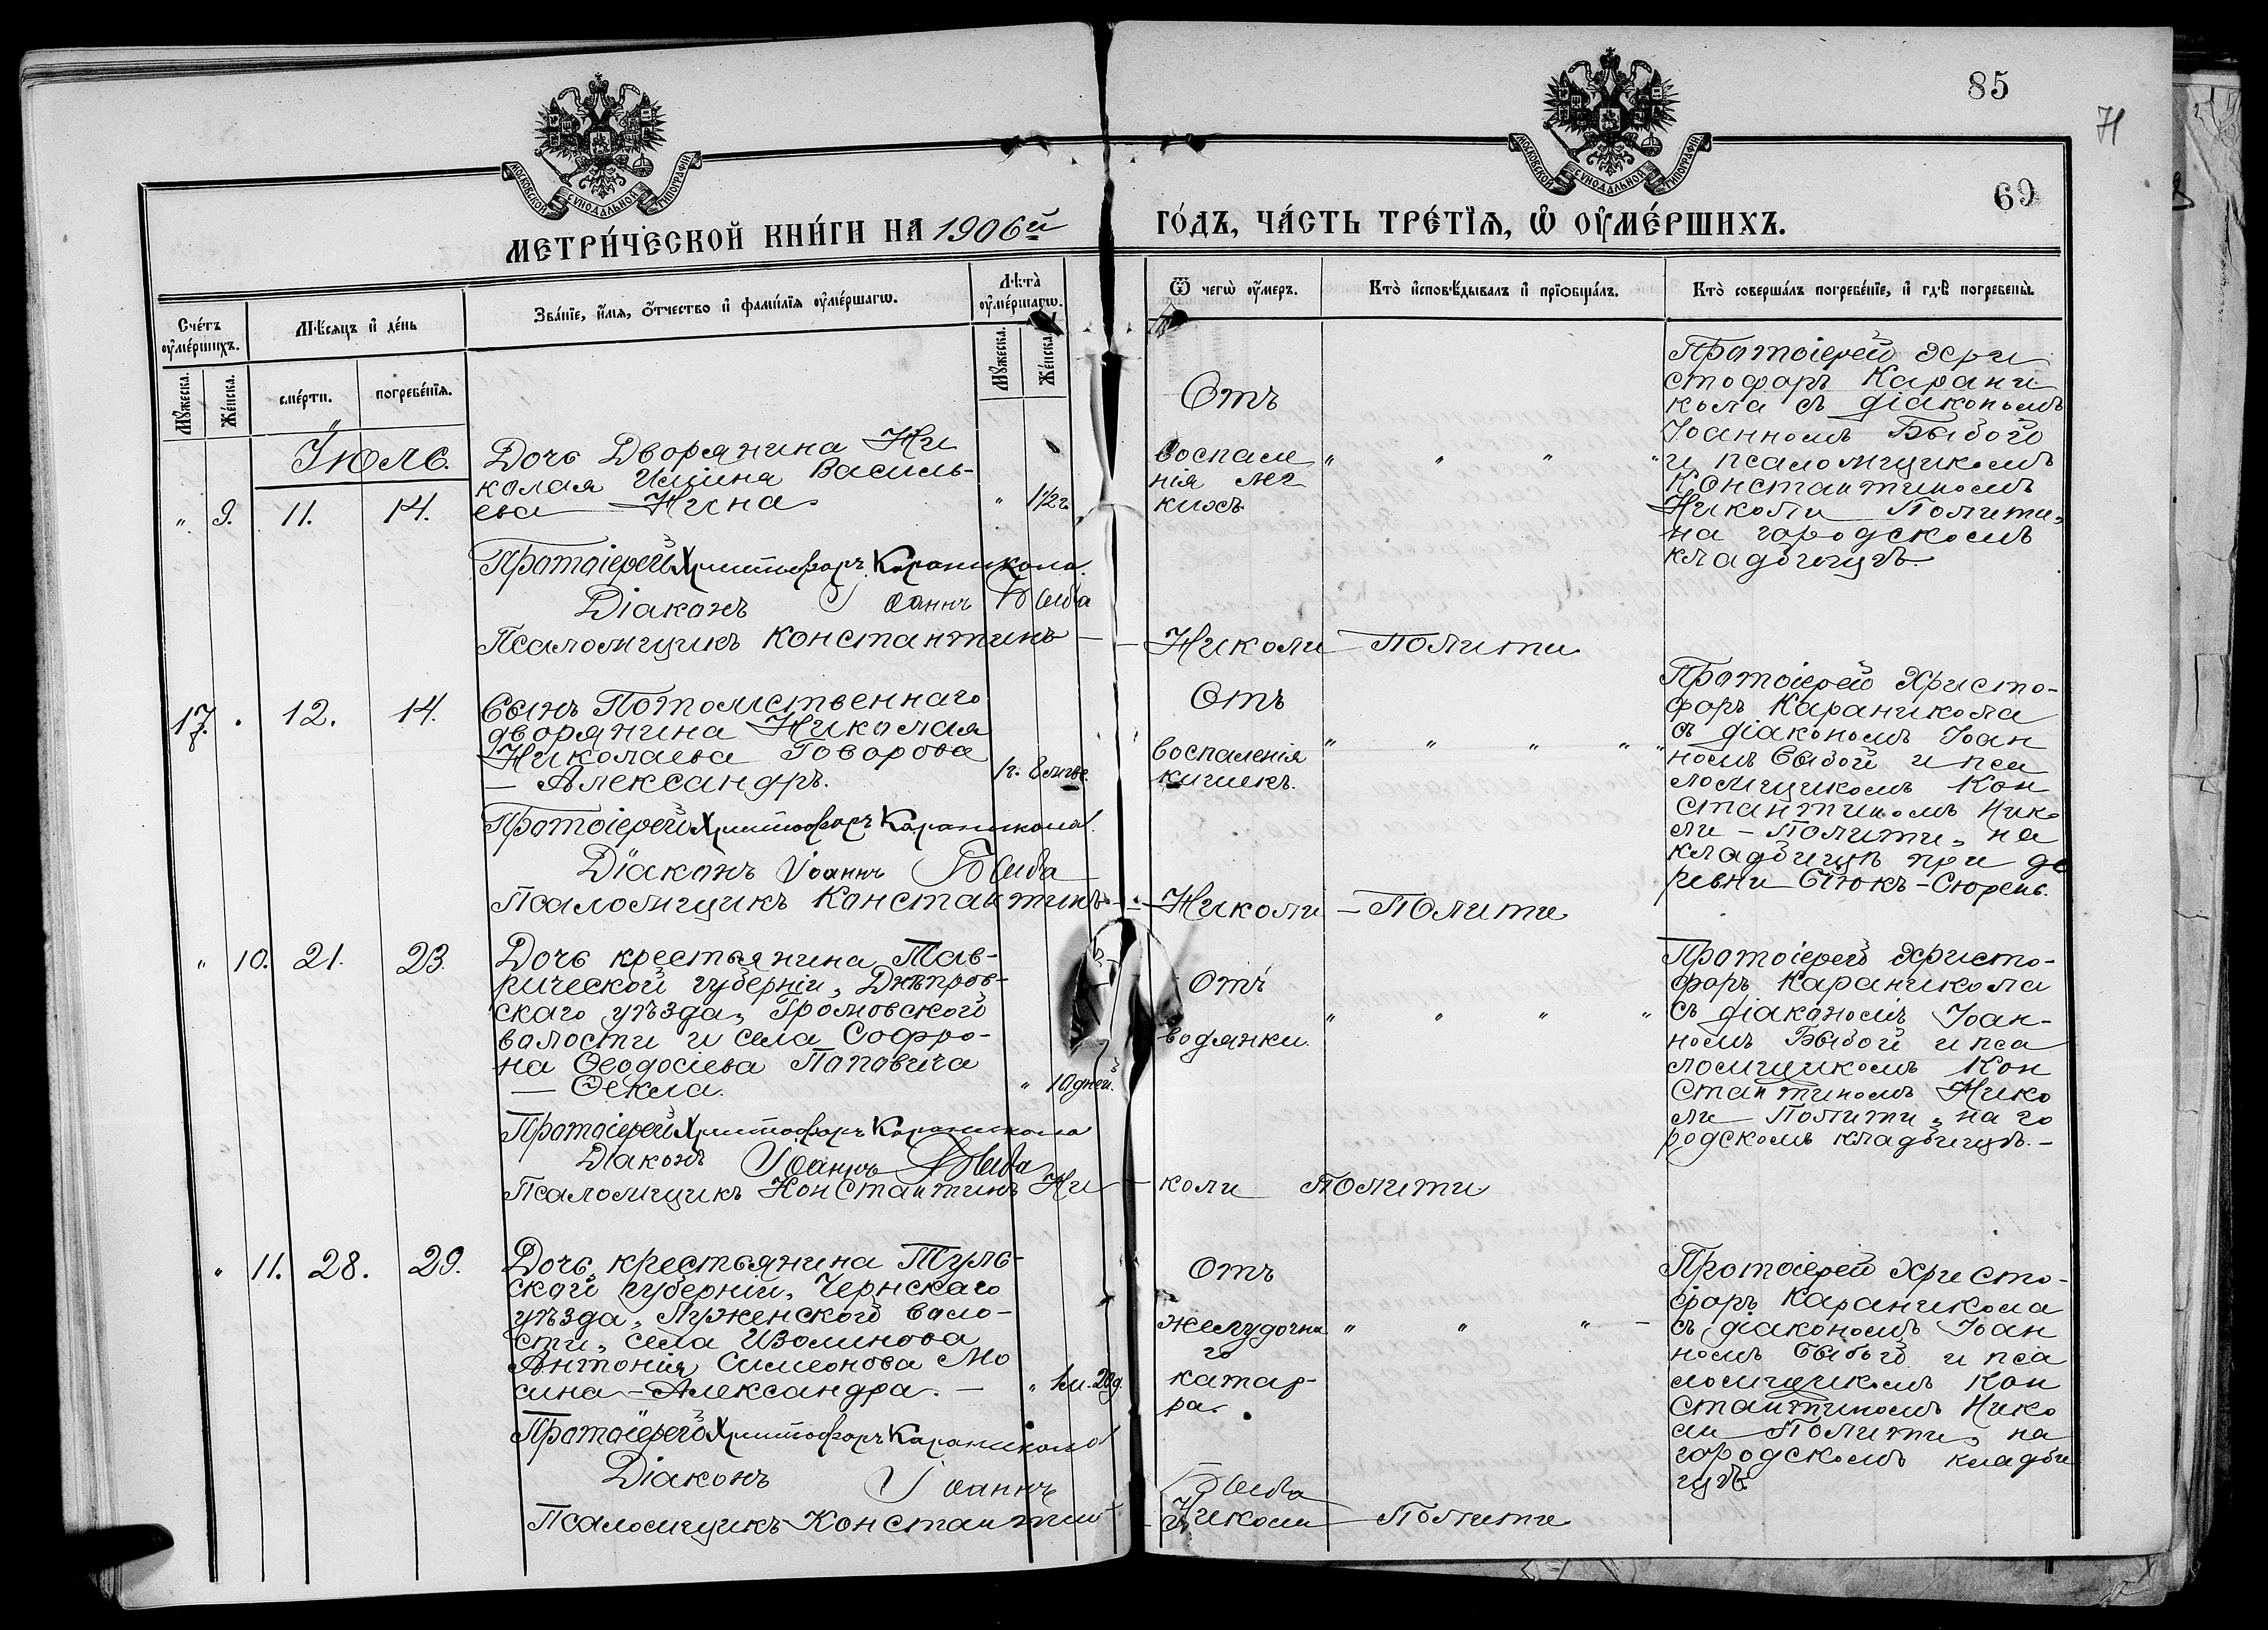 85
71
69
МОСКОВСКОЙ СѴНОДАЛЬНОЙ ТИПОГРАФІИ
МОСКОВСКОЙ СѴНОДАЛЬНОЙ ТИПОГРАФІИ
МЕТРИ́ЧЕСКОЙ КНИ́ГИ НА 1906й ГО́ДЪ, ЧА́СТЬ ТРЕ́ТЇѦ, Ѡ҆ ОУ҆МЕ́РШИХЪ.
Сче́тъ оу҆ме́ршихъ.
Мꙋ́жеска.
Же́нска.
Мѣ́сѧцъ и҆ де́нь
сме́рти.
погребе́нїѧ.
Зва́нїе, и҆́мѧ, ѻ҆́тчество и҆ фами́лїѧ оу҆ме́ршагѡ.
Лѣ́та̀ оу҆ме́ршагѡ.
Мꙋ́жеска.
Же́нска.
Ѿ чегѡ̀ оу҆́меръ.
Кто̀ и҆сповѣ́дывалъ и҆ прїѡбща́лъ.
Кто̀ соверша́лъ погребе́нїе, и҆ гдѣ̀ погребены̀.
Іюль.
" 9. 11. 14.
Дочь Дворянина Ни
колая Илiина Василь-
ева — Нина.
" 1½ г.
Отъ
воспале
нія лег
кихъ
" " " "
Протоіерей Хри
стофоръ Карани
кола съ діакономъ
Іоанномъ Быбой
и псаломщикомъ
Константиномъ
Николи Полити,
на городскомъ
кладбищѣ.
Протоіерей Христофоръ Караникола.
Діаконъ Іоаннъ Быба
Псаломщикъ Константинъ — Николи — Полити
17. " 12. 14.
Сынъ Потомственнаго
дворянина Николая
Николаева Говорова
— Александръ.
1г. 8 мѣс.
Отъ
воспаленія
кишекъ.
" " " " "
Протоіерей Христо-
форъ Караникола
съ діакономъ Іоан
номъ Быбой и пса
ломщикомъ Кон
стантиномъ Нико
ли — Полити, на
кладбищѣ при де
ревни Бѣюкъ-Сюрень.
Протоіерей Христофоръ Караникола.
Діаконъ Іоаннъ Быба
Псаломщикъ Константинъ — Николи — Полити
" 10. 21. 23.
Дочь крестьянина Тав-
рической губерніи, Днѣпров-
скаго уѣзда, Громовской
волости и села Софро-
на Ѳеодосіева Поповича
— Ѳекла.
" 10 дней.
Отъ
водянки.
" " " "
Протоіерей Христо-
форъ Караникола
съ діакономъ Іоан-
номъ Быбой и пса
ломщикомъ Кон
стантиномъ Нико
ли Полити, на го
родскомъ кладбищѣ. —
Протоіерей Христофоръ Караникола
Діаконъ Іоаннъ Быба
Псаломщикъ Константинъ Ни — коли Полити
" 11. 28. 29.
Дочь крестьянина Туль-
ской губерніи, Чернскаго
уѣзда, Луженской воло-
сти, села Изолинова
Антонія Симеонова Мо
сина — Александра. —
" 1м. 20д.
Отъ
желудочна
го
катар-
ра.
" " " —
Протоіерей Христо-
форъ Караникола
съ діакономъ Іоан
номъ Быбой и пса
ломщикомъ Кон
стантиномъ Нико
ли Полити, на
городскомъ кладби
щѣ.
Протоіерей Христофоръ Караникола
Діаконъ Іоаннъ Быба
Псаломщикъ Константинъ — Николи — Полити